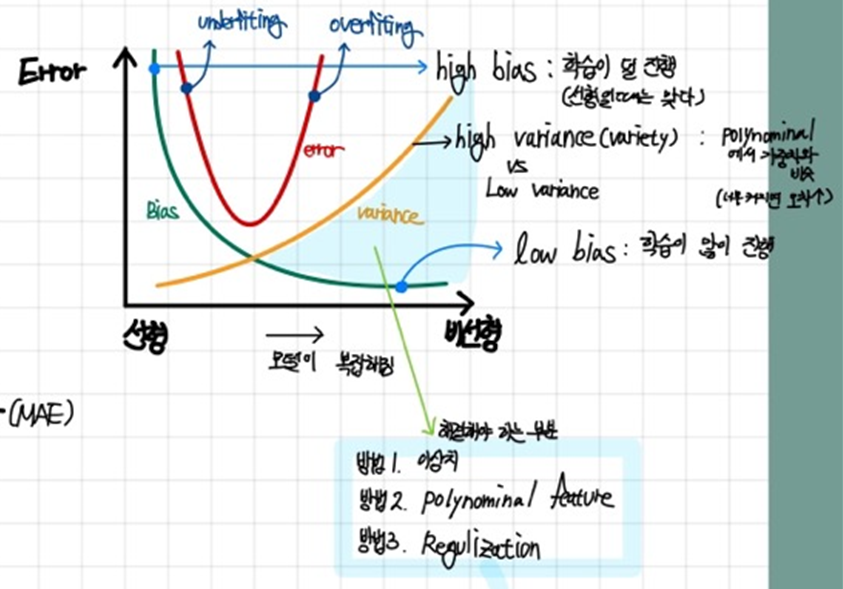 underfiting
overfiting
Error
high bias : 학습이 덜 진행
(선형일때는 맞다)
error
high variance(variety) : polynominal
에서 가중치와
비슷
VS
Low variance
(너무 커지면 오차↑)
Bias
variance
low bias : 학습이 많이 진행
선형
비선형
모델이 복잡해짐
(MAE)
해결해야 하는 부분
방법 1. 이상치
방법 2. polynominal feature
방법 3. Regulization